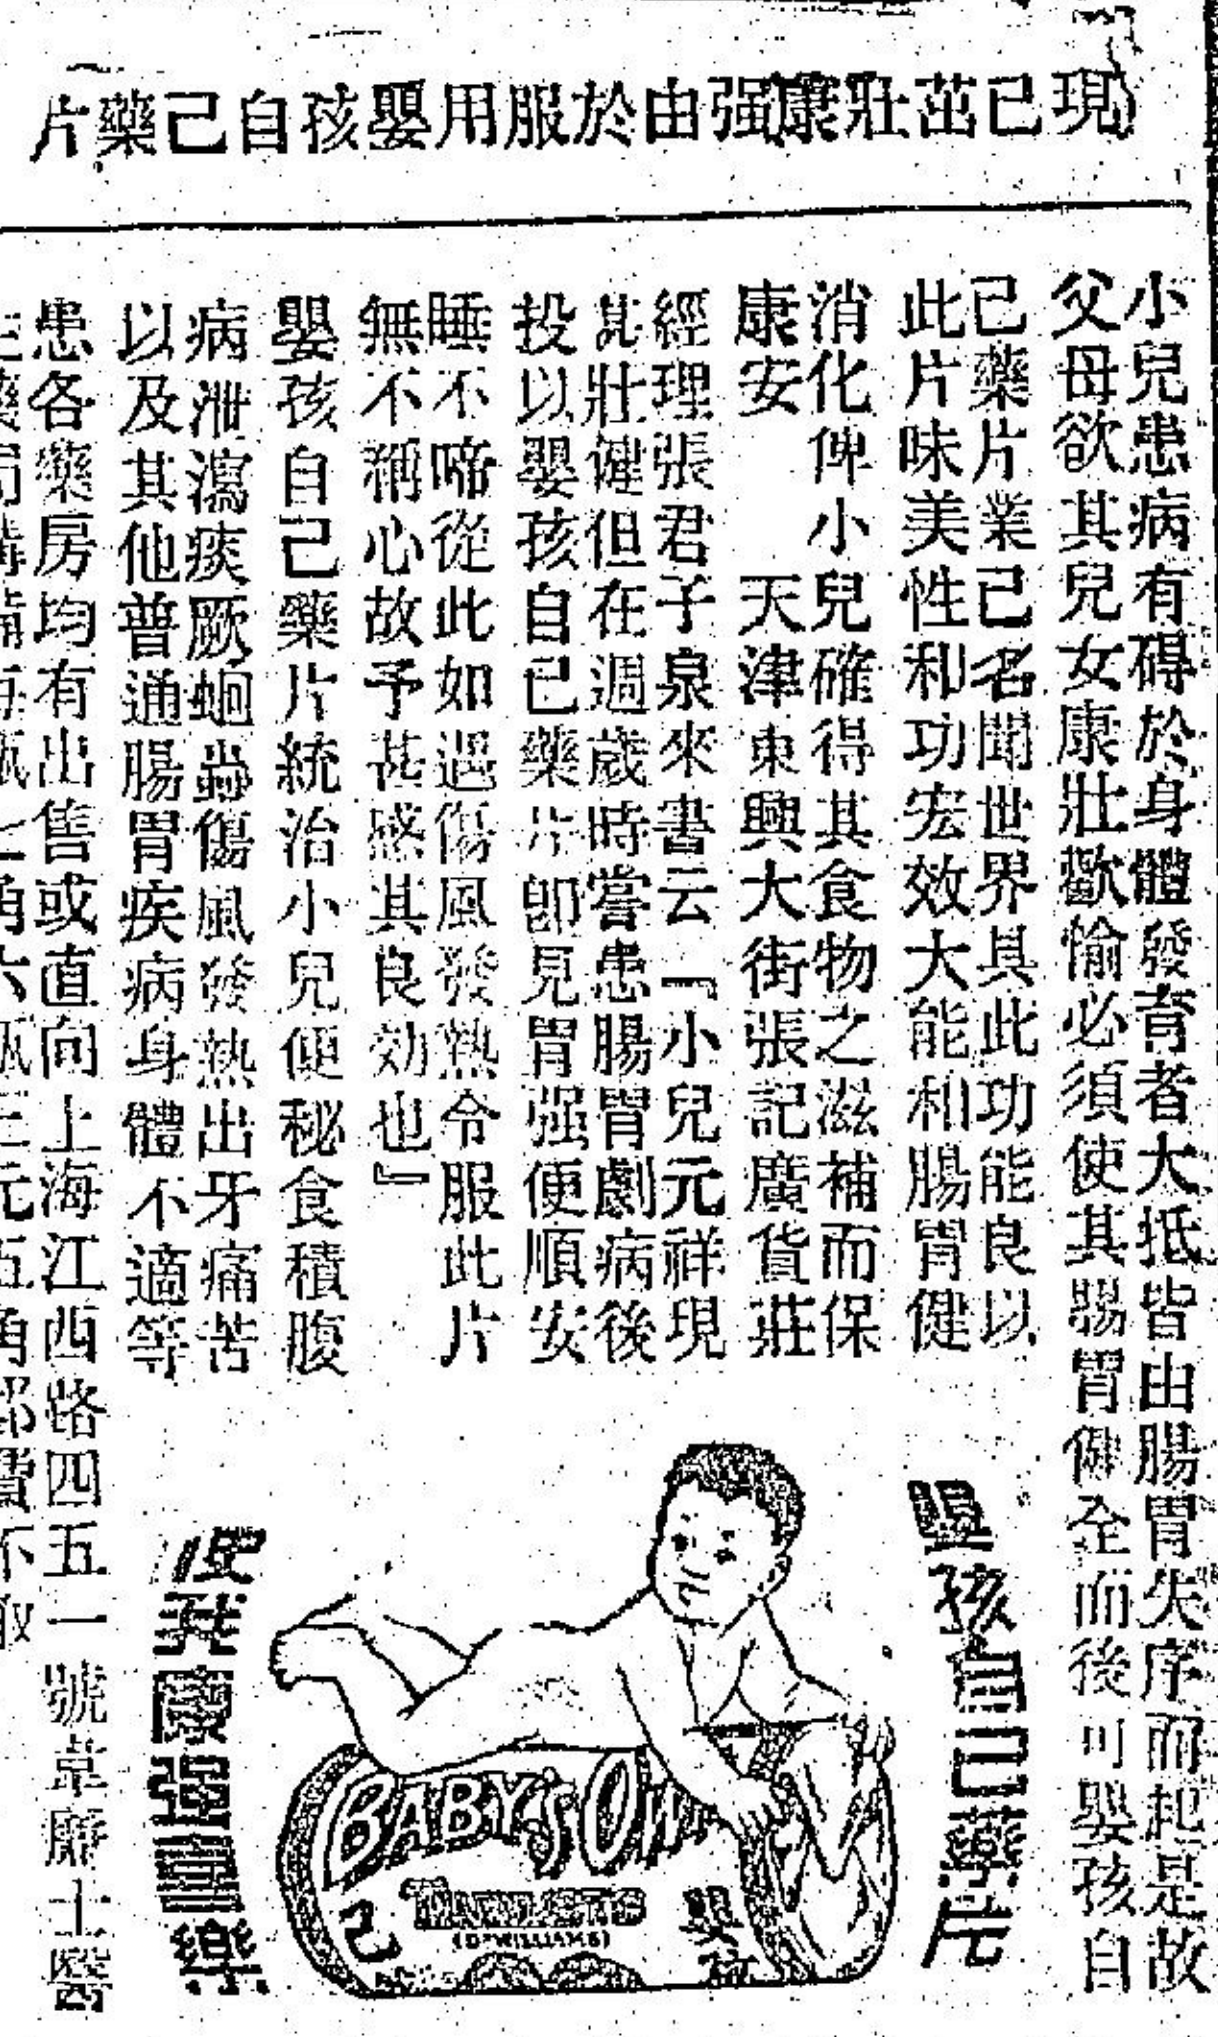 現已茁壯康强由於服用嬰孩自己藥片
小兒患病有碍於身體發育者大抵皆由腸胃失序而起是故
父母欲其兒女康壯歡愉必須使其腸胃健全而後可嬰孩自
己藥片業已名聞世界具此功能良以
此片味美性和功宏效大能和腸胃健
消化俾小兒確得其食物之滋補而保
康安 天津東興大街張記廣貨莊
經理張君子泉來書云『小兒元祥現
甚壯健但在週歲時嘗患腸胃劇病後
投以嬰孩自己藥片卽見胃强便順安
睡不啼從此如遇傷風發熱令服此片
無不稱心故予甚感其良効也』
嬰孩自己藥片統治小兒便秘食積腹
病泄瀉痰厥蛔蟲傷風發熱出牙痛苦
以及其他普通腸胃疾病身體不適等
患各藥房均有出售或直向上海江西路四五一號韋廉士醫
生藥局購 每瓶 角六瓶三元五角郵費不取
嬰孩自己藥片
使我康强喜樂
BABY'S OWN
TABLETS
(DR WILLIAMS)
嬰孩
己